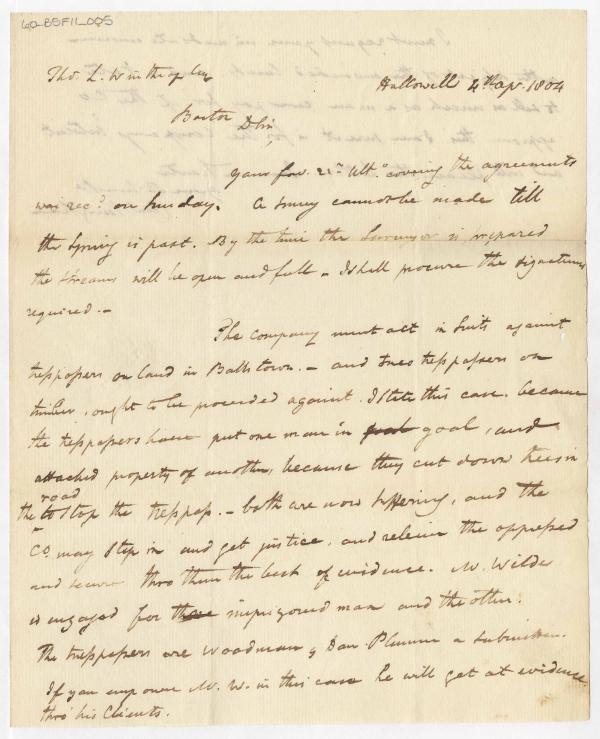 60_B5F11_005
Tho. L. Winthrop Esq
Hallowell 4th Apr. 1804
Boston
D Sir,
Yours fav. 21st Ult. covering the agreements
was recd. on Sunday. A survey cannot be made till
the Spring is past. By the time the Surveyor is prepared
the streams will be open and full - I shall procure the signatures
required. -
The Company must act in suits against
trespassers on land in Ballstown. - and trespassers on
timber, ought to be proceeded against. I state this case, because
the trespassers have put one man in goal, and
attached property of another, because they cut down trees in
the road to stop the trespass. - both are now suffering, and the
Co. may step in and get justice, and relieve the oppressed
and secure thro them the best of evidence. Mr. Wilde
is engaged for imprisoned man and the other.
The trespassers are Woodman & Dan. Plummer
If you empower Mr. W. in this case he will get at evidence
thro' his Clients.